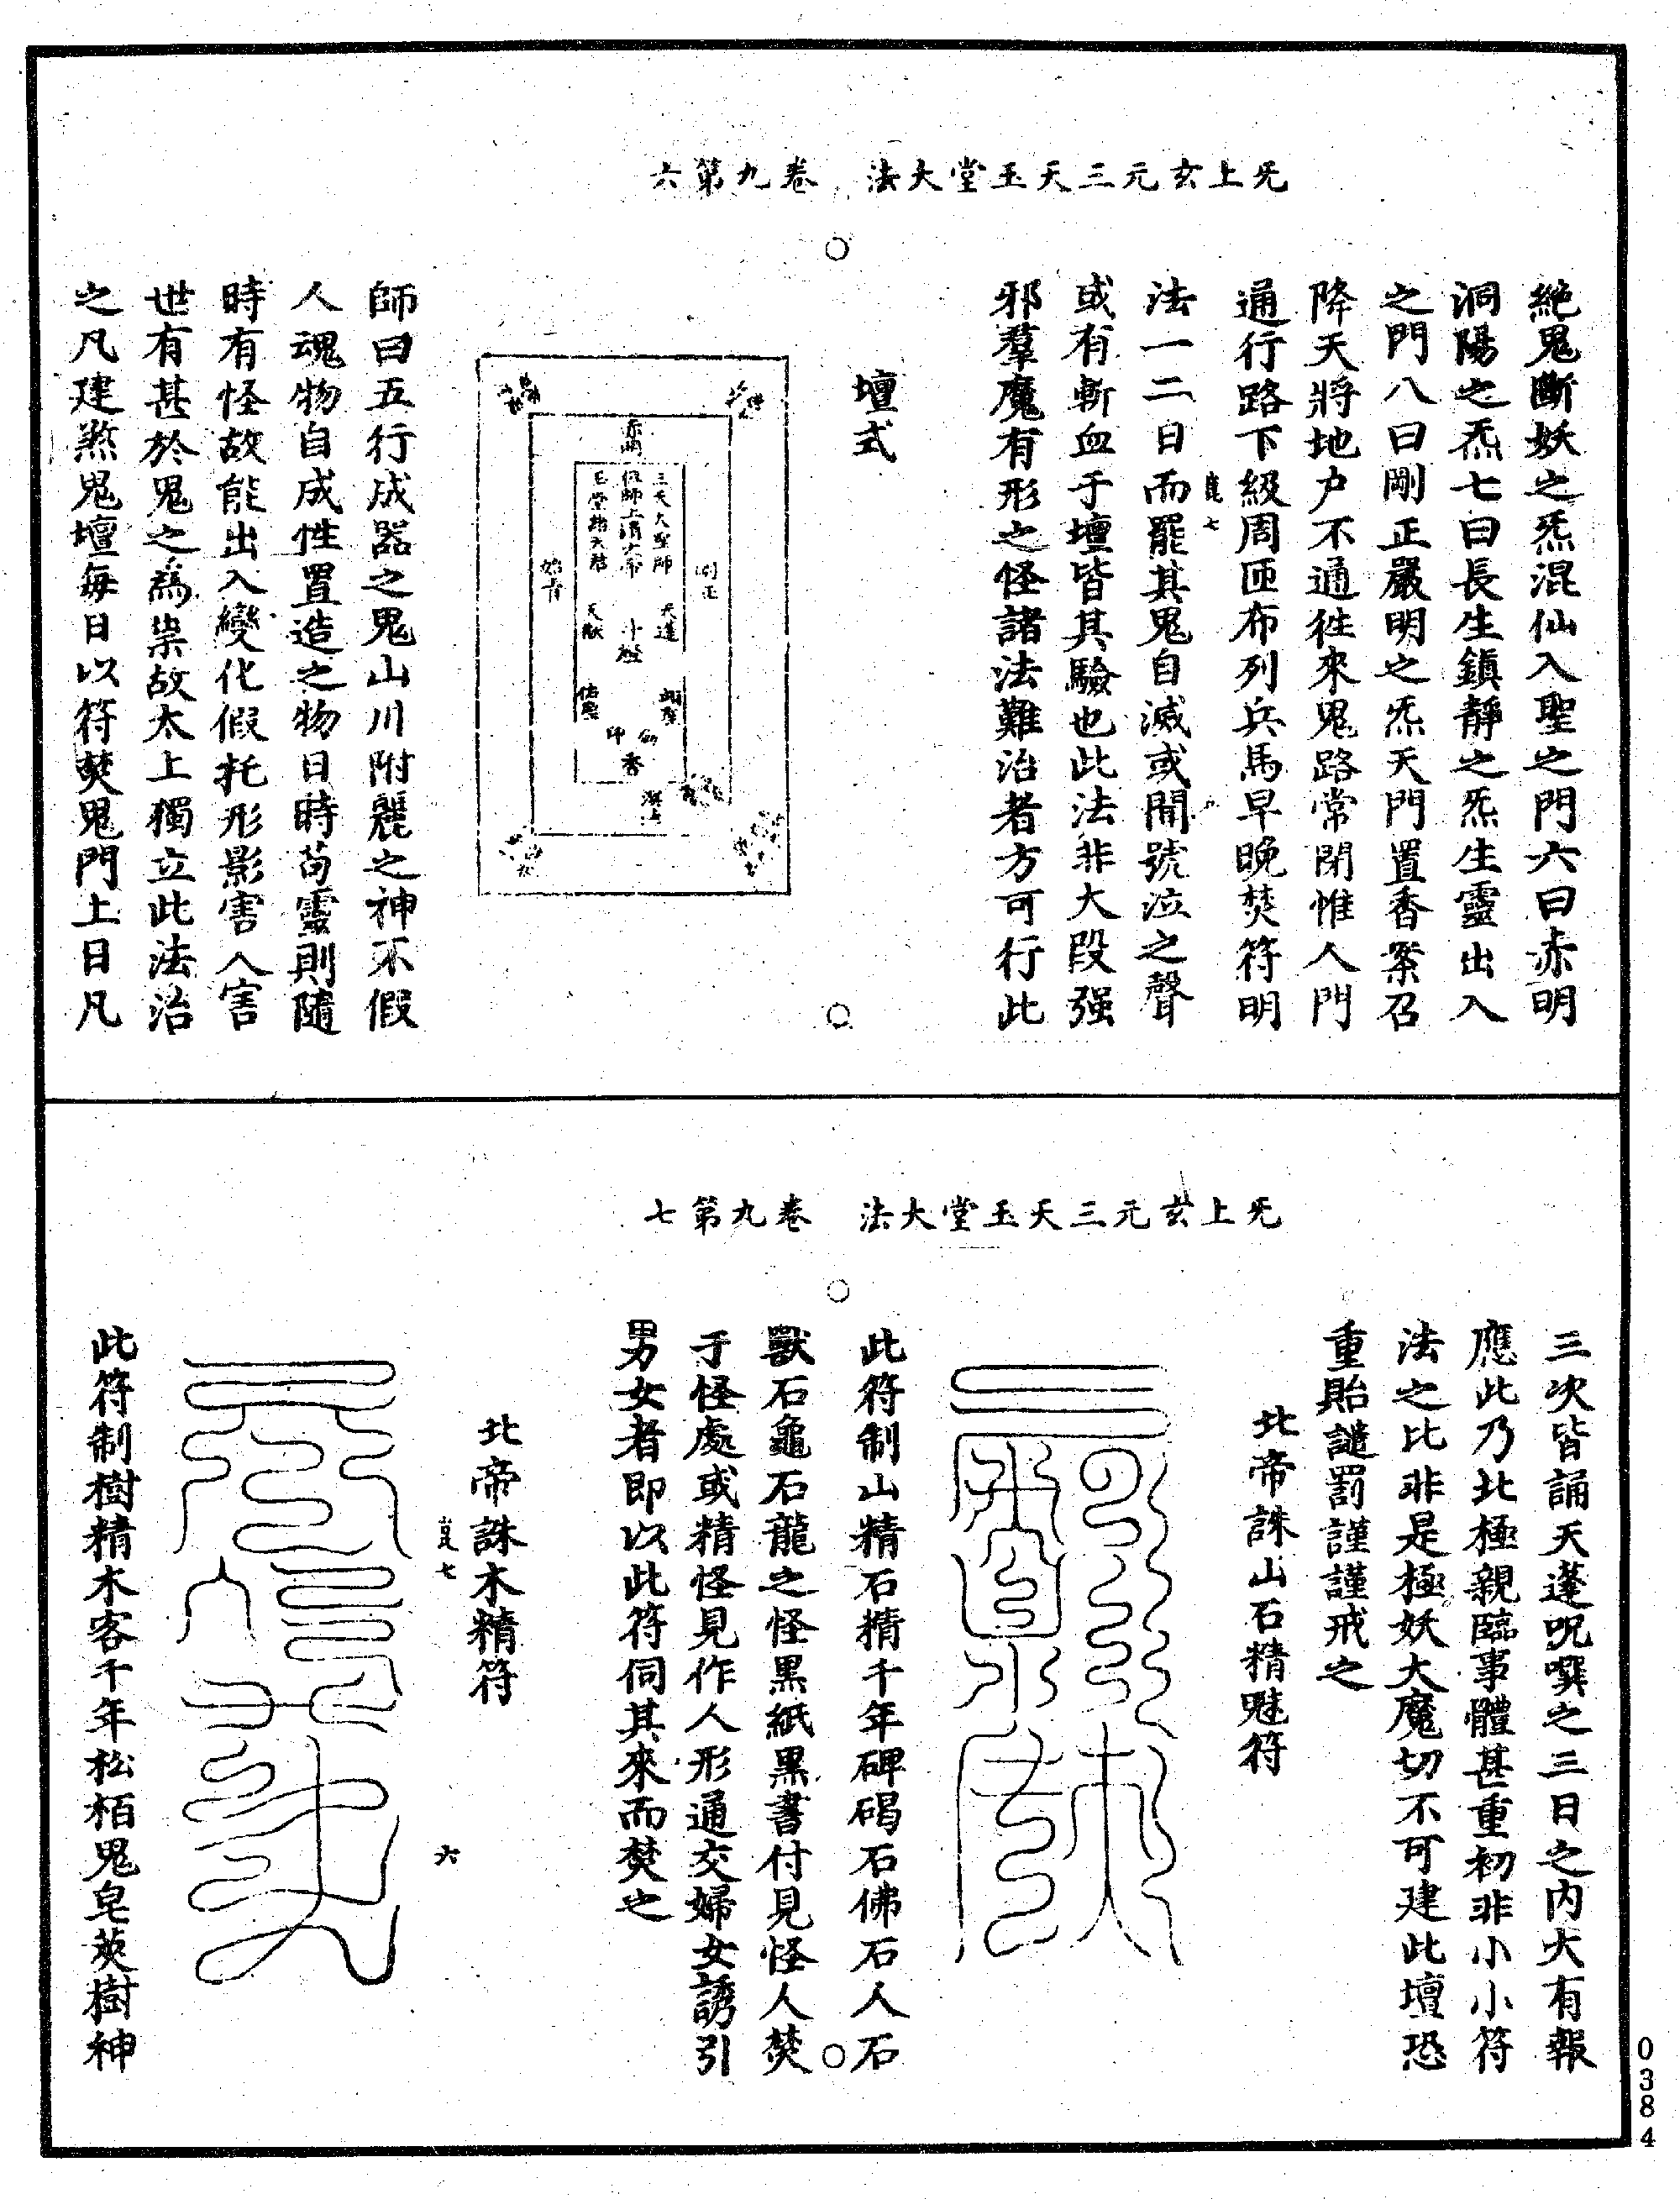 无上玄元三天玉堂大法　卷九第六
絕鬼斷妖之炁混仙入聖之門六曰赤明
洞陽之炁七曰長生鎮靜之炁生靈出入
之門八曰剛正嚴明之炁天門置香案召
降天將地户不通徃來鬼路常閉惟人門
通行路下級周匝布列兵馬早晚焚符明
法一二日而罷其鬼自滅或聞號泣之聲
或有斬血于壇皆其驗也此法非大段强
邪羣魔有形之怪諸法難治者方可行此
壇式
三天大聖師
玉堂
天蓬
天猷
十燈
佑聖
印
劍
香
師曰五行成器之鬼山川附麗之神不假
人魂物自成性置造之物日時苟靈則隨
時有怪故能出入變化假托形影害人害
世有甚於鬼之爲祟故太上獨立此法治
之凡建煞鬼壇每日以符焚鬼門上日凡
无上玄元三天玉堂大法　卷九第七
三次皆誦天蓬呪噀之三日之内大有報
應此乃北極親臨事體甚重初非小小符
法之比非是極妖大魔切不可建此壇恐
重貽譴罰謹謹戒之
北帝誅山石精魅符
此符制山精石精千年碑碣石佛石人石
獸石龜石龍之怪黑紙黑書付見怪人焚
于怪處或精怪見作人形通交婦女誘引
男女者即以此符伺其來而焚之
六
北帝誅木精符
此符制樹精木客千年松栢鬼皂莢樹神
0384